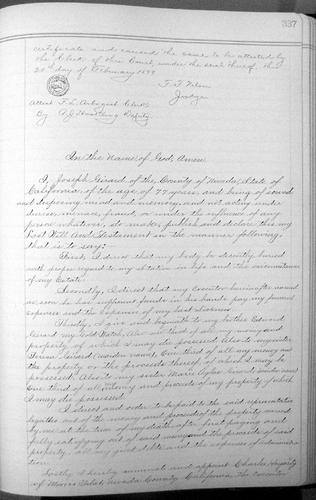 337
certificate and caused the same to be attested by
the Clerk of this Court, under the seal thereof, this
20th day of February 1899.
F. T. Nilon
Judge
Attest F. L. Arbogast Clerk
By Deputy
In the Name of God, Amen
I, Joseph Girard of the County of Nevada, State of
California, of the age of 77 years, and being of sound
and disposing mind and memory, and not acting under
duress, menace, fraud, or under the influence of any
person whatever, do make, publish and declare this my
Last Will And Testament in the manner following,
that is to say:
First, I direct that my body be decently buried
with proper regard to my station in life and the circumstances
of my Estate.
Secondly, I direct that my Executor hereinafter named
as soon he has sufficient funds in his hands pay my funeral
expenses and the expenses of my last sickness.
Thirdly, I give and bequeath to my brother Edward
Girard my Gold Watch, Also one third of all my money and
property of which I may die possessed. Also to my sister
Girard (maiden name) One third of all my money and
the property or the proceeds thereof of which I may die
possessed. Also to my sister Marie Girard
One third of all money and proceeds of my property of which
I may die possessed
I direct and order to be paid to the said representative
legatees out of the money and proceeds of the property owned
by me at the time of my death after first paying and
fully satisfying out of said money and the proceeds of said
property, all my good debts and the expenses of administra
tion.
Lastly, I hereby nominate and appoint Charles Hegarty
of Moores Flat, Nevada County, California, the Executor